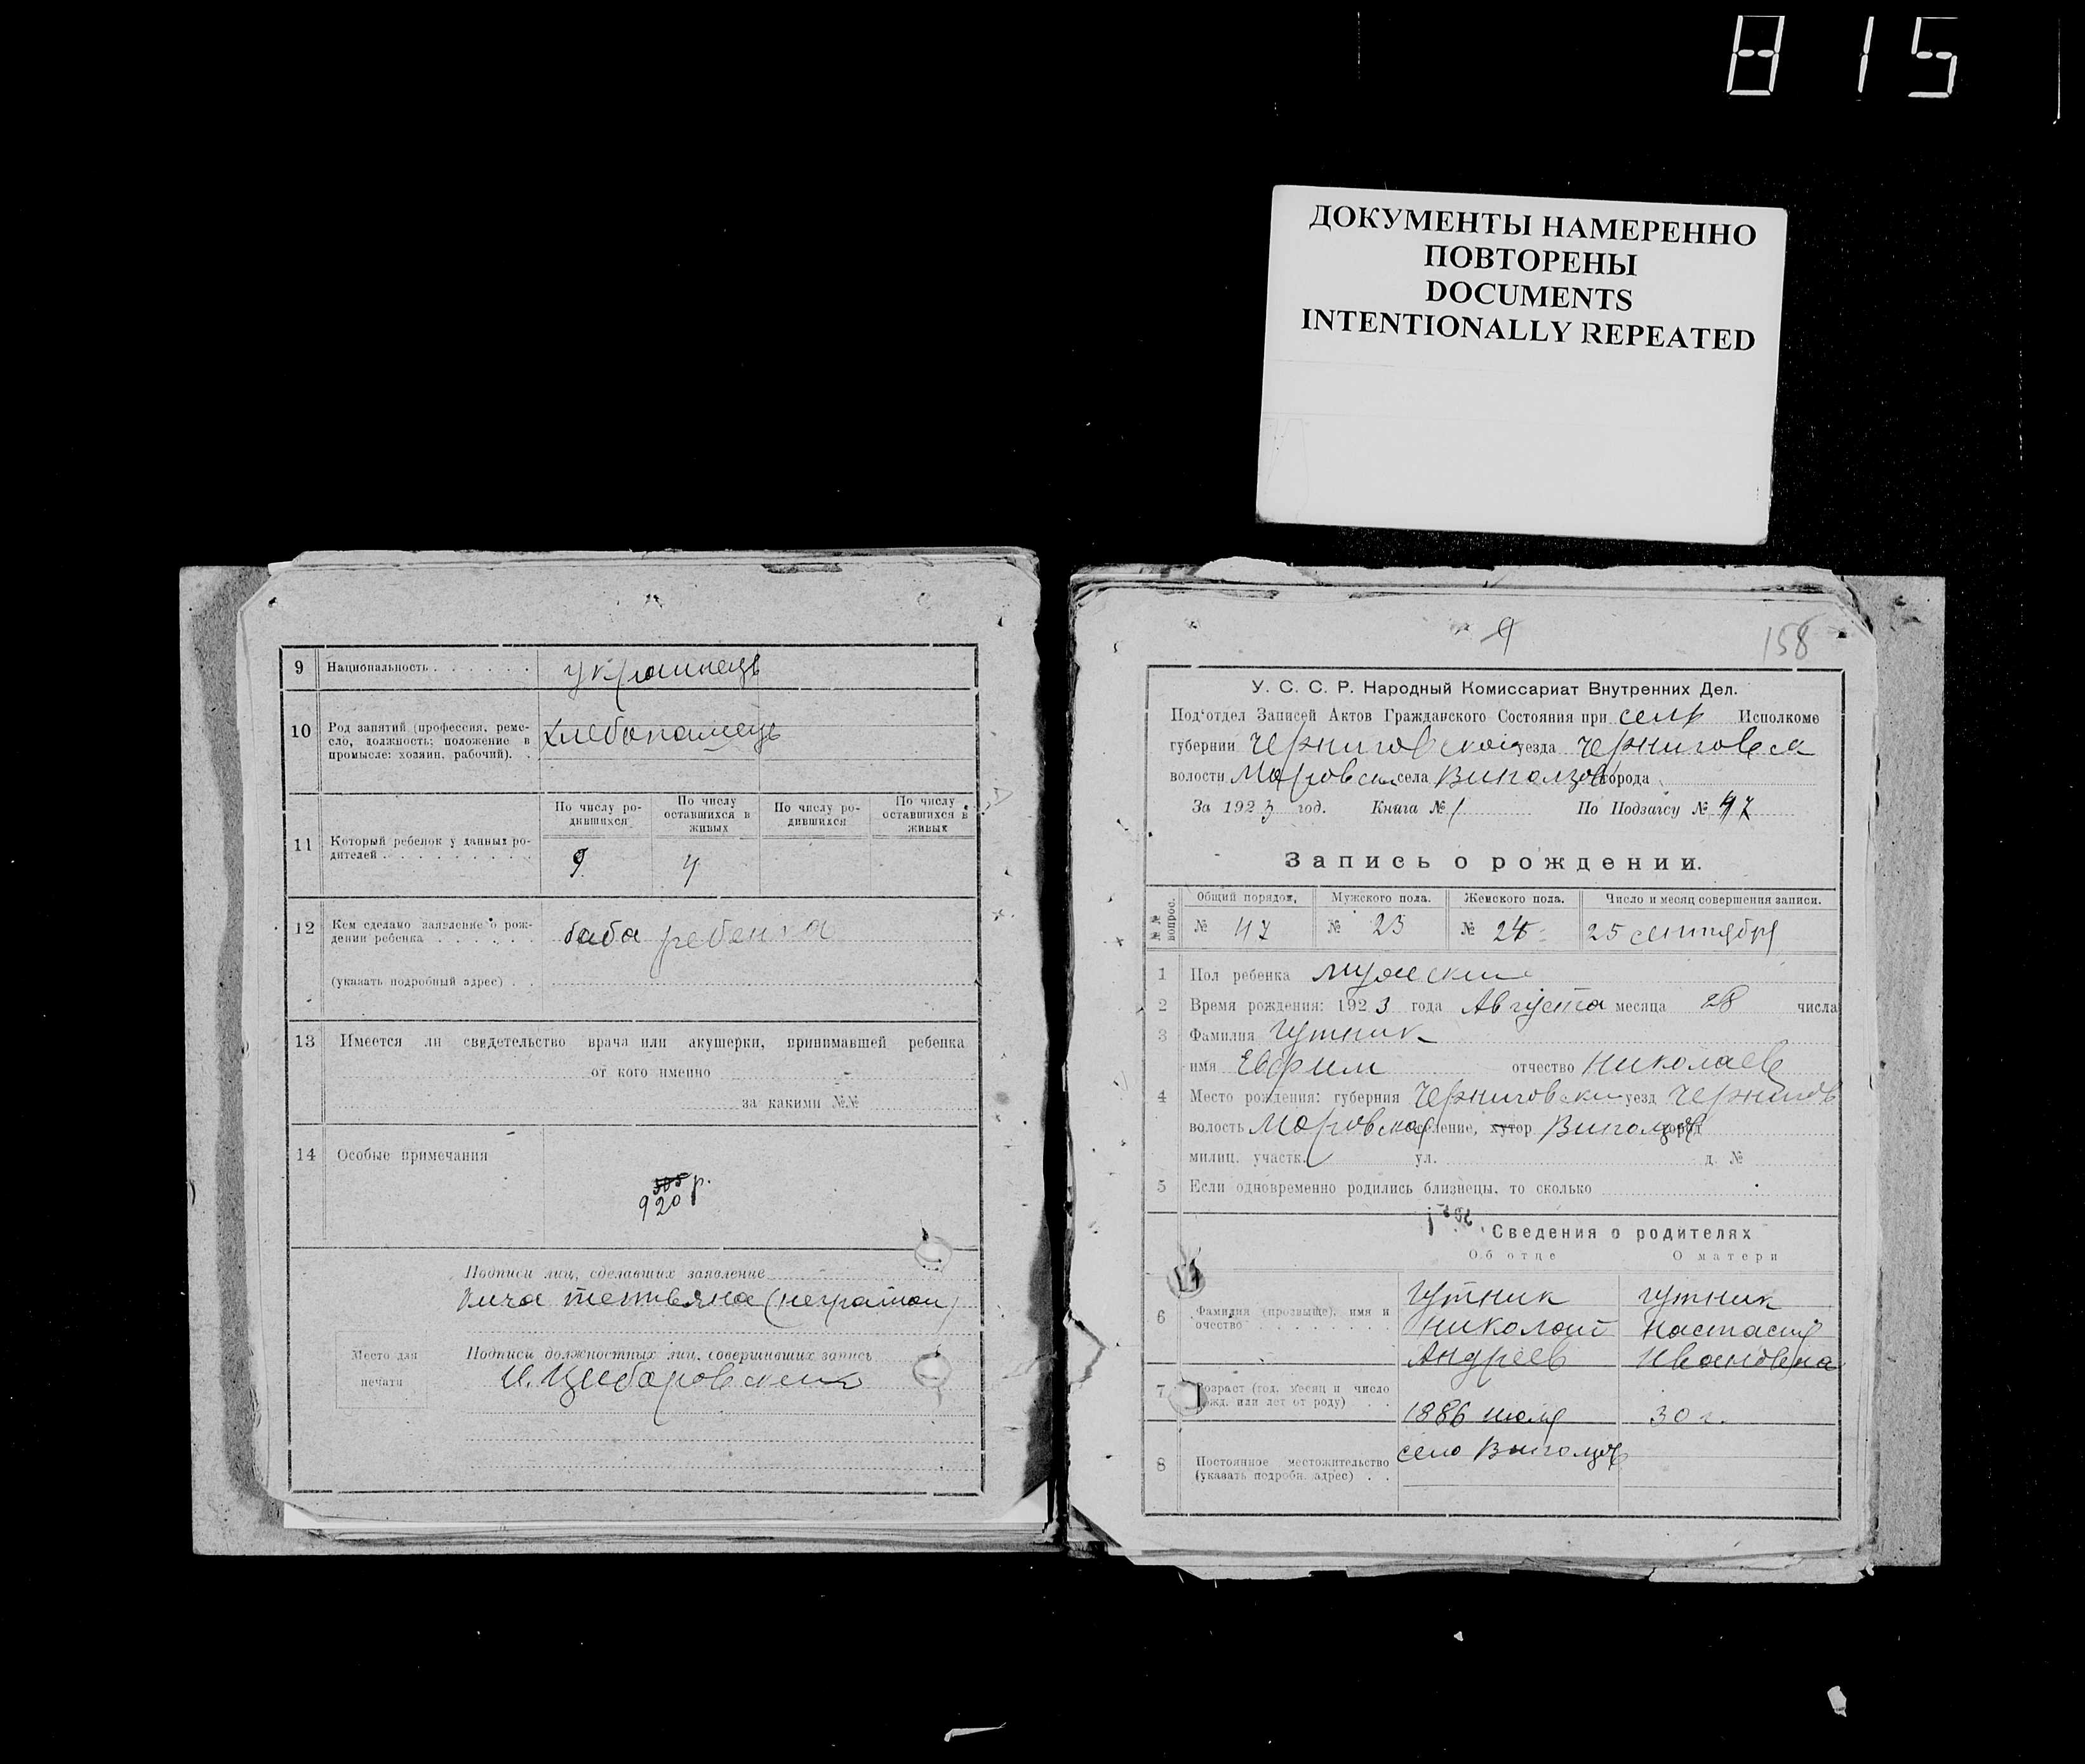 815
ДОКУМЕНТЫ НАМЕРЕННО
ПОВТОРЕНЫ
DOCUMENTS
INTENTIONALLY REPEATED
9 Национальность украинець
10 Род занятий (профессия, реме-
сло, должность; положение в
промысле: хозяин, рабочий). хлебопашець
11 Который ребенок у данных ро-
дителей
По числу ро-
дившихся
По числу
оставшихся в
живых
По числу ро-
дившихся
По числу
оставшихся в
живых
9 4
12 Кем сделано заявление о рож-
дении ребенка баба ребенка
(указать подробный адрес)
13 Имеется ли свидетельство врача или акушерки, принимавшей ребенка
от кого именно
за какими №№
14 Особые примечания
920 р.
Подписи лиц, сделавших заявление
Место для
печати
Подписи должностных лиц, совершивших запись
9
158
У. С. С. Р. Народный Комиссариат Внутренних Дел.
Под'отдел Записей Актов Гражданского Состояния при Исполкоме
губернии Черниговской уезда Черниговск
волости села города
За 1923 год. Книга № 1 По Подзагсу № 47
Запись о рождении.
№№ вопрос.
Общий порядок, Мужского пола. Женского пола. Число и месяц совершения записи.
№ 47 № 23 № 24 25 сентября
1 Пол ребенка мужский
2 Время рождения: 1923 года Августа месяца 28 числа
3 Фамилия Гутник
имя Евфим отчество Николаев
4 Место рождения: губерния уезд Чернигов
волость селение, хутор город
милиц. участк. ул. д. №
5 Если одновременно родились близнецы, то сколько
Сведения о родителях
Об отце О матери
6 Фамилия (прозвище), имя и
очество
Гутник Гутник
Николай Настасия
Андреев Ивановна
7 Возраст (год, месяц и число
рожд. или лет от роду) 1886 июля 30 г.
8 Постоянное местожительство
(указать подробн. адрес) село